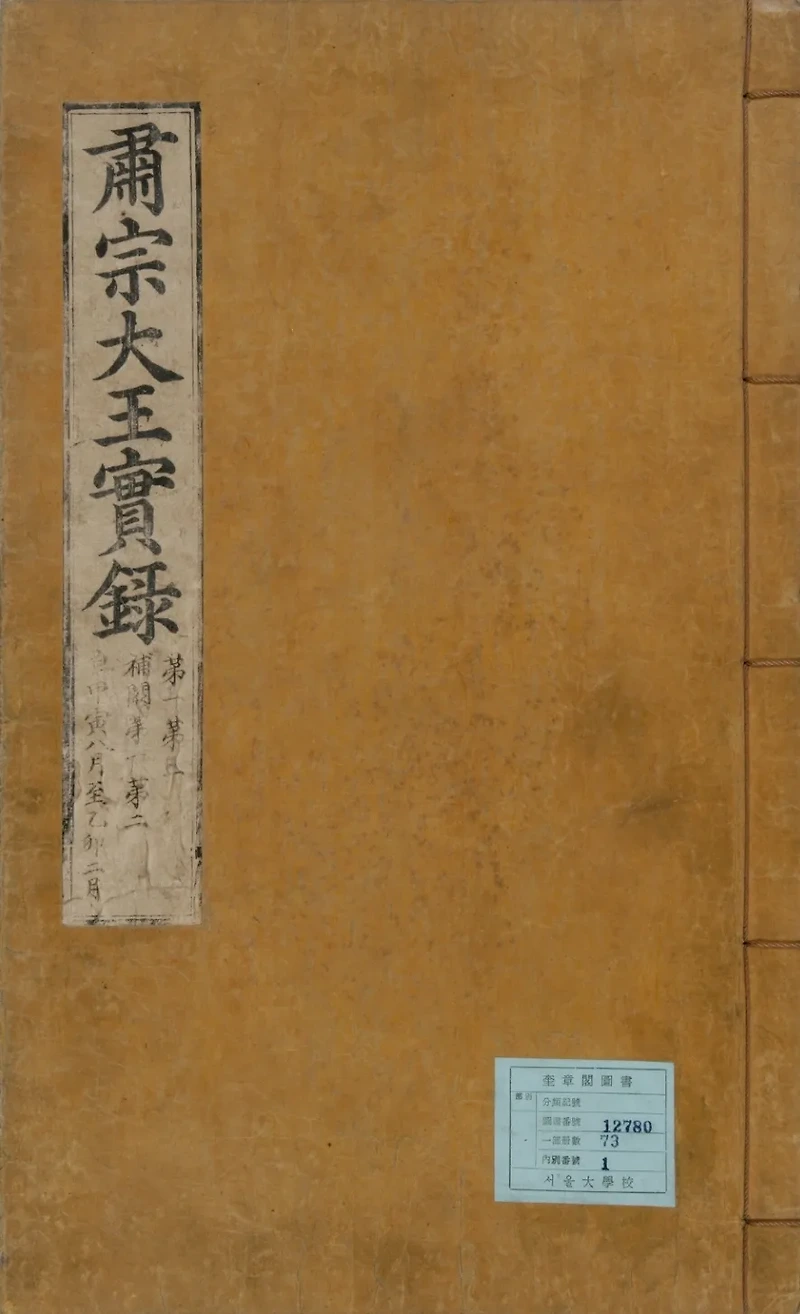 肅宗大王實錄
第一第二
補闕第一第二
自甲寅八月至乙卯二月
奎章閣圖書
分類記號
圖書番號 12780
一部冊數 73
內別番號 1
서울大學校